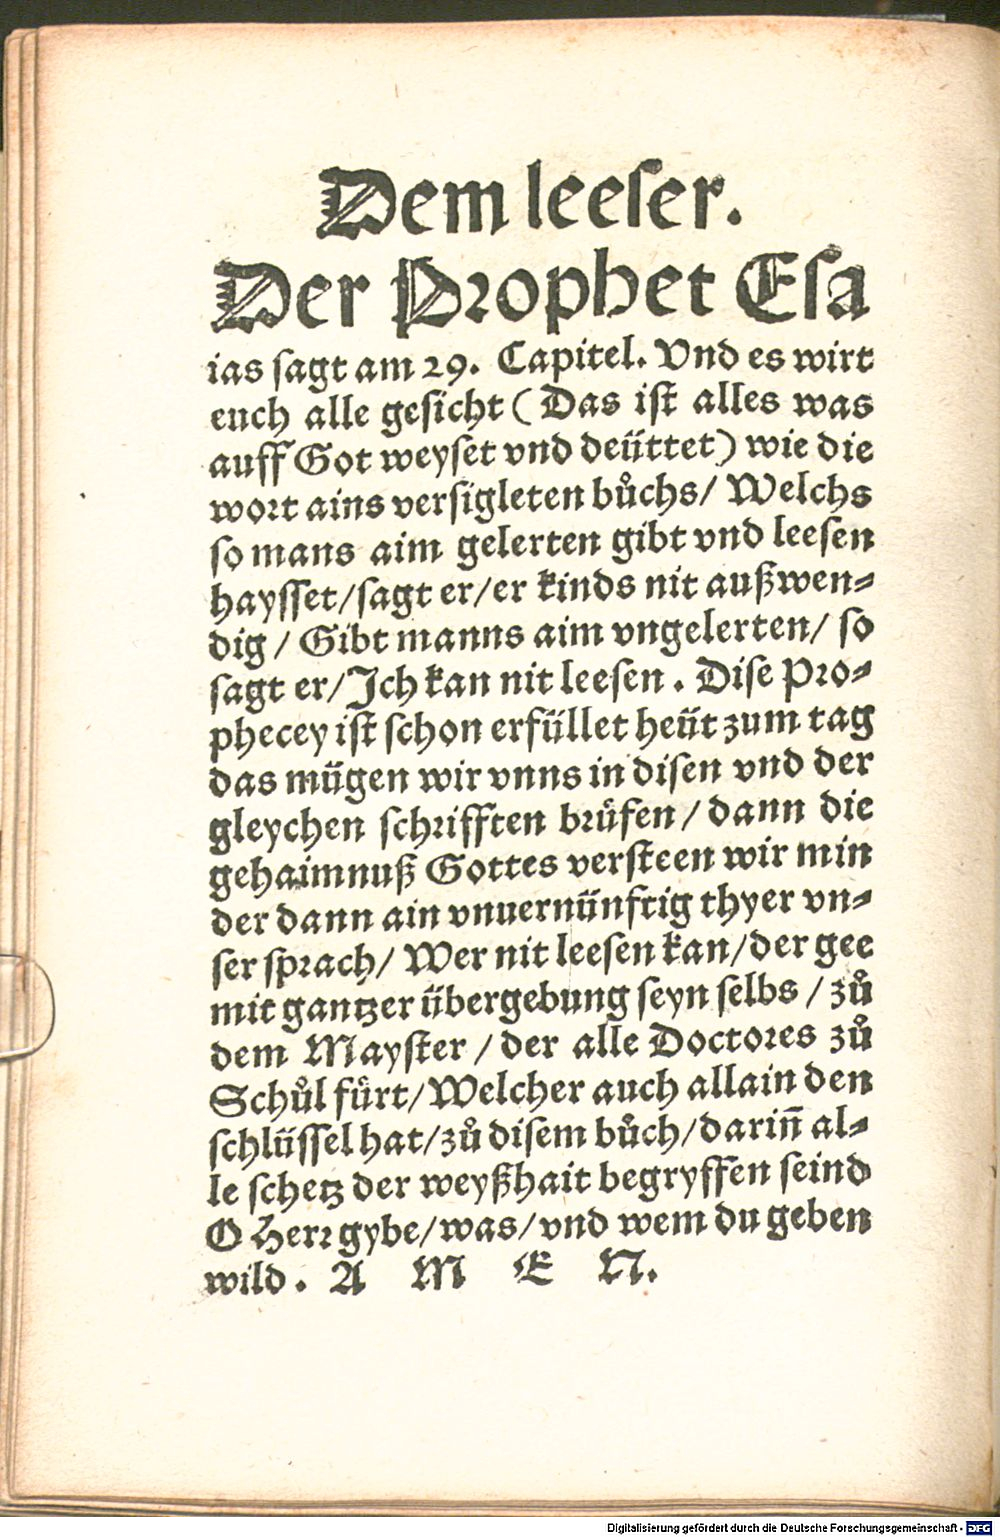 Dem leeser.
Der Prophet Esa
ias sagt am 29. Capitel. Vnd es wirt
euch alle gesicht (Das ist alles was
auff Got weyset vnd deüttet) wie die
wort ains versigleten bůchs/ Welchs
so mans aim gelerten gibt vnd leesen
haysset/sagt er/er kinds nit außwen-
dig / Gibt manns aim vngelerten/ so
sagt er/Jch kan nit leesen. Dise Pro-
phecey ist schon erfüllet heüt zum tag
das mügen wir vnns in disen vnd der
gleychen schrifften brůfen/ dann die
gehaimnuß Gottes versteen wir min
der dann ain vnuernünftig thyer vn-
ser sprach/ Wer nit leesen kan/der gee
mit gantzer übergebung seyn selbs / zů
dem Mayster / der alle Doctores zů
Schůl fürt/ Welcher auch allain den
schlüssel hat/zů disem bůch/darin̄ al-
le schetz der weyßhait begryffen seind
O Herr gybe/was/vnd wem du geben
wild. A M E N.
Digitalisierung gefördert durch die Deutsche Forschungsgemeinschaft - DFG